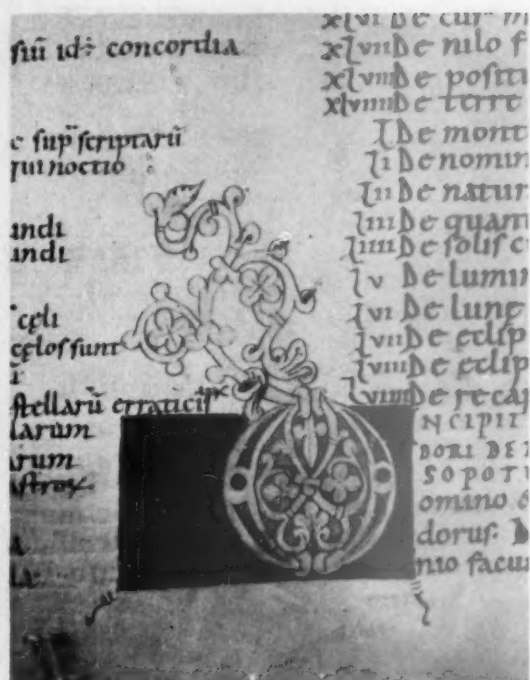 siū id÷ concordia
e sup scriptarū
qui noctio
undi
undi
cęli
cęlos sunt
stellarū erraticis
larum
arum
astrox
A
la
xlvi De cur m
xlvii De nilo f
xlviii De positi
xlviiii De terre
l De mont
li De nomin
lii De natur
liii De quan
liiii De solis c
lv De lumin
lvi De lune
lvii De eclip
lviii De eclip
lviiii De recap
NCIPIT
DORI DE
SOPOT
omino
dorus.
nio facun